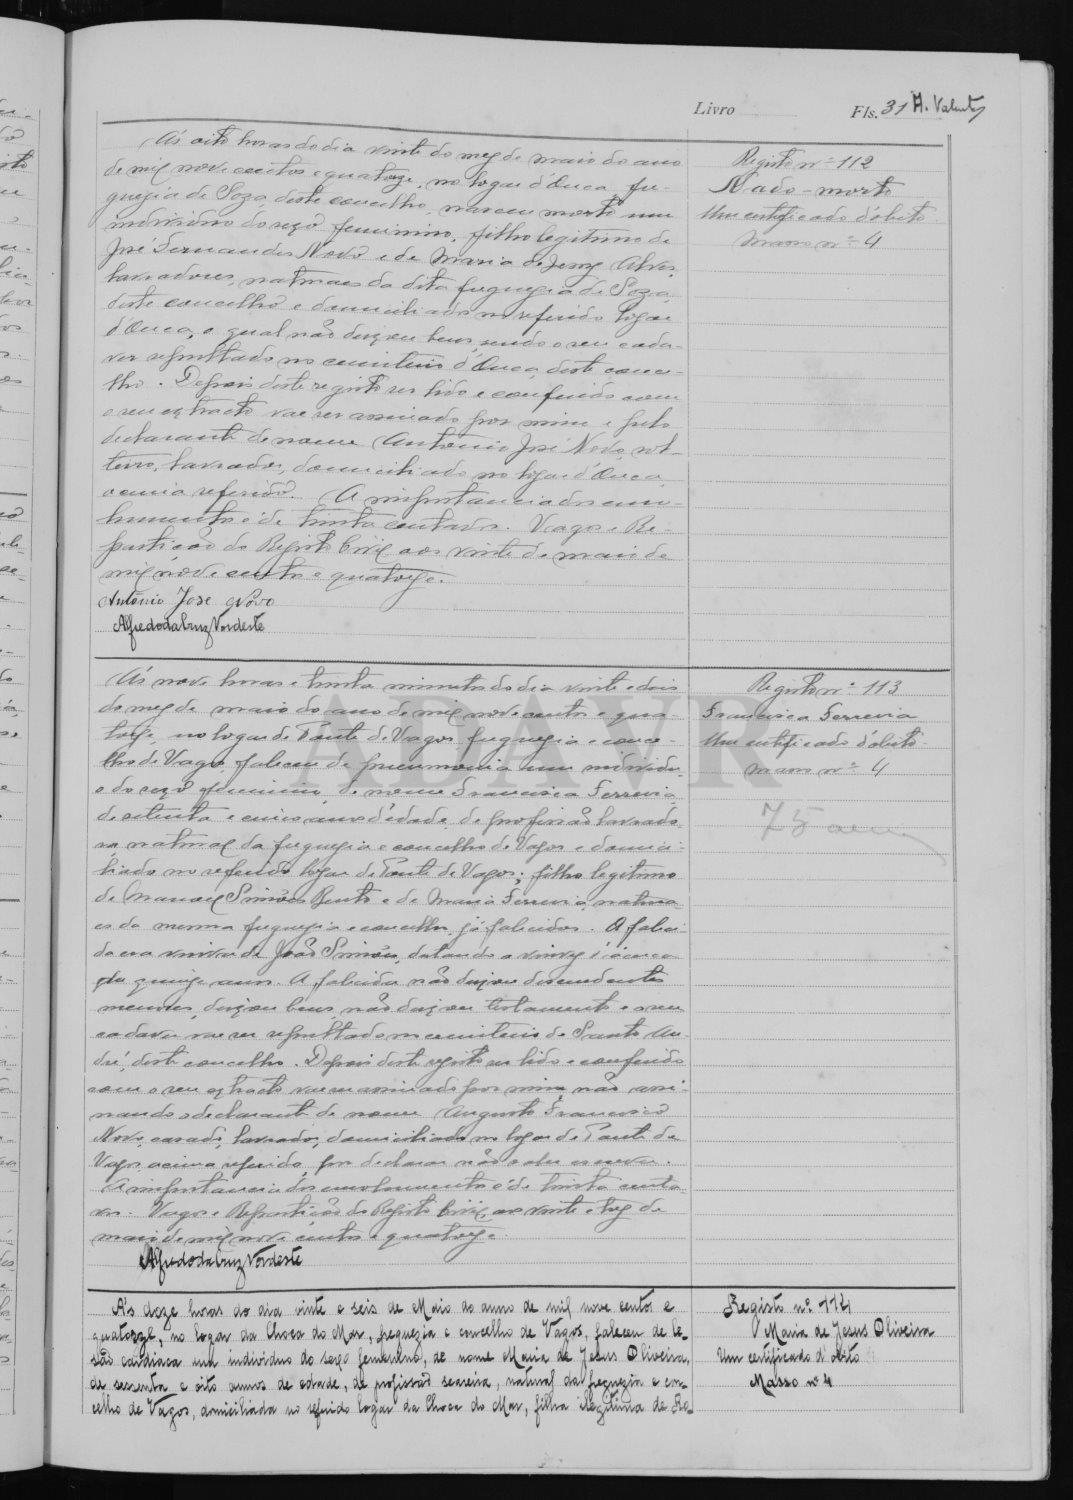 Livro Fls. 31 A. Valente
Ás oito horas do dia vinte do mez de maio do ano
de mil nove centos e quatorze, no logar d'Ouca, fre-
guezia de Soza, deste concelho, nasceu morto um
individuo do sexo feminino, filho legitimo de
José Fernandes Novo e de Maria de Jesus Alves,
lavradores, naturaes da dita freguezia de Soza
deste concelho e domiciliados no referido logar
d'Ouca, o qual não deixou bens, sendo o seu cada-
ver sepultado no cemiterio d'Ouca, deste conce-
lho. Depois deste registo ser lido e conferido com
o seu extracto vae ser assinado por mim e pelo
declarante de nome Antonio José Novo, sol-
teiro, lavrador, domiciliado no logar d'Ouca,
acima referido. A importancia dos emo-
lumentos é de trinta centavos. Vagos e Re-
partição do Registo Civil aos vinte de maio de
mil nove centos e quatorze.
Antonio José Novo
Alfredo da Cruz Nordeste
Registo nº 112
Nado-morto
Um certificado d'obito
Masso nº 4
Ás nove horas e trinta minutos do dia vinte e dois
do mez de maio do ano de mil nove centos e qua-
torze, no logar de Ponte de Vagos, freguezia e conce-
lho de Vagos, faleceu de pneumonia um individu-
o do sexo feminino, de nome Francisca Ferreira,
de setenta e cinco anos d'edade, de profissão lavrado-
ra, natural da freguezia e concelho de Vagos e domici-
liada no referido logar de Ponte de Vagos; filha legitima
de Manoel Simões Bento e de Maria Ferreira, natura-
es da mesma freguezia e concelho, já falecidos. A faleci-
da era viuva de João Simões, datando a viuvez d'ácerca
de quinze anos. A falecida não deixou descendentes
menores, deixou bens, não deixou testamento e o seu
cadaver vae ser sepultado no cemiterio de Santo An-
dré, deste concelho. Depois deste registo ser lido e conferido
com o seu extracto vae ser assinado por mim, não assi-
nando o declarante de nome Augusto Francisco
Novo, casado, lavrador, domiciliado no logar de Ponte de
Vagos, acima referido, por declarar não saber escrever.
A importancia dos emolumentos é de trinta centa-
vos. Vagos e Repartição do Registo Civil aos vinte e trez de
maio de mil nove centos e quatorze.
Alfredo da Cruz Nordeste
Registo nº 113
Francisca Ferreira
Um certificado d'obito
Masso nº 4
75
ADAVR
Ás doze horas do dia vinte e seis de Maio do anno de mil nove centos e
quatorze, no logar da Choca do Mar, freguezia e concelho de Vagos, faleceu de le-
são cardiaca um individuo do sexo femenino, de nome Maria de Jesus Oliveira,
de sessenta e oito annos de edade, de profissão seareira, natural da freguezia e con-
celho de Vagos, domiciliada no referido logar da Choca do Mar, filha ilegitima de Ro-
Registo nº 114
Maria de Jesus Oliveira
Um certificado d'obito
Masso nº 4